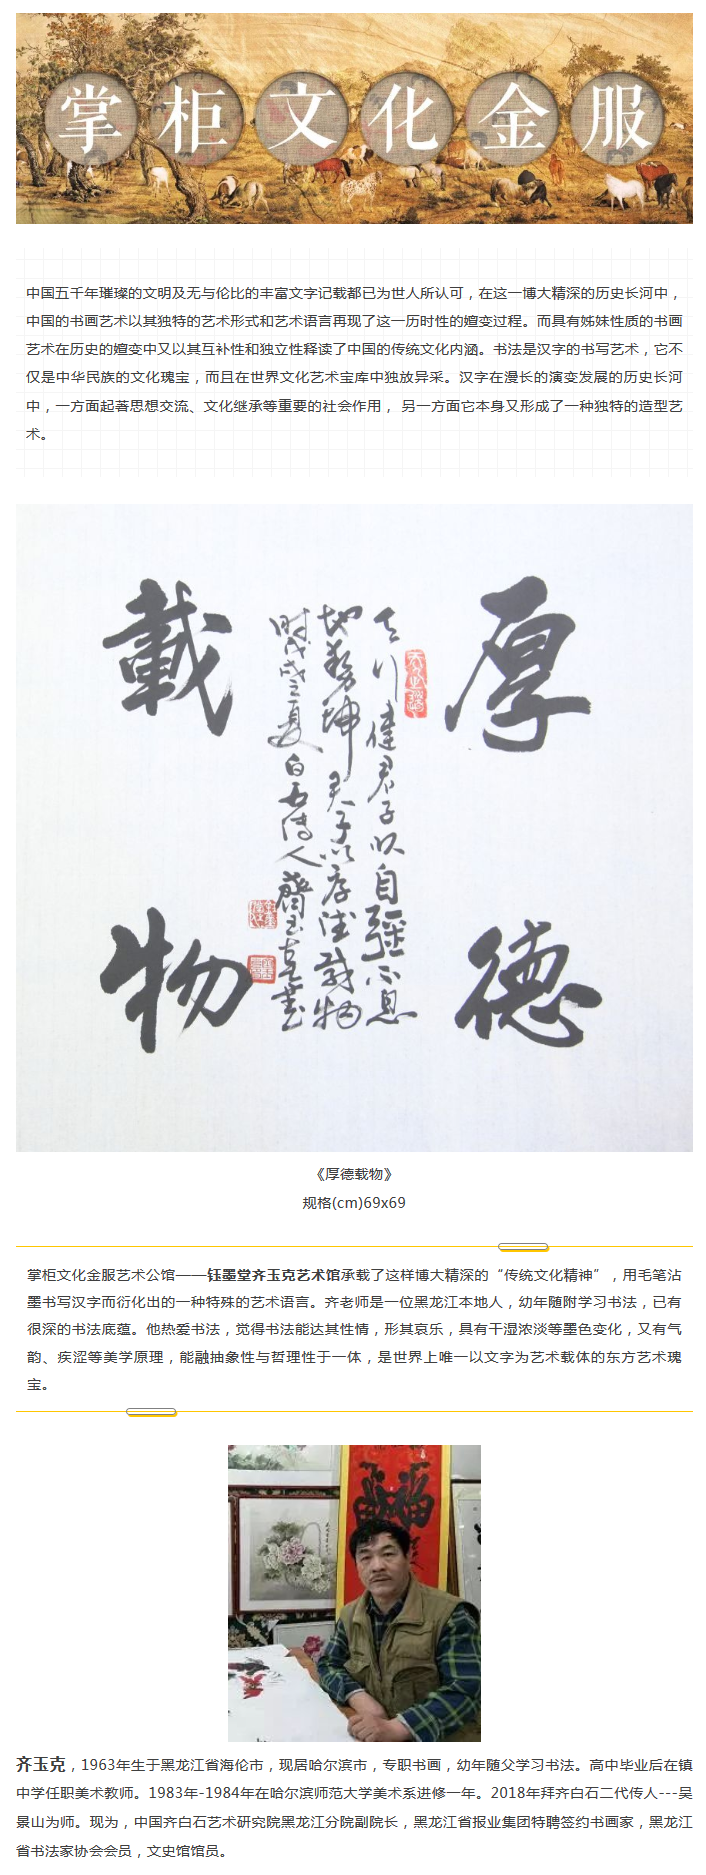 掌柜文化金服
中国五千年璀璨的文明及无与伦比的丰富文字记载都已为世人所认可，在这一博大精深的历史长河中，
中国的书画艺术以其独特的艺术形式和艺术语言再现了这一历时性的嬗变过程。而具有姊妹性质的书画
艺术在历史的嬗变中又以其互补性和独立性释读了中国的传统文化内涵。书法是汉字的书写艺术，它不
仅是中华民族的文化瑰宝，而且在世界文化艺术宝库中独放异采。汉字在漫长的演变发展的历史长河
中，一方面起著思想交流、文化继承等重要的社会作用， 另一方面它本身又形成了一种独特的造型艺
术。
厚德
載物
天行健君子以自强不息
地势坤君子以厚德载物
时戊戌之夏白石传人齊玉克书
《厚德载物》
规格(cm)69x69
掌柜文化金服艺术公馆——钰墨堂齐玉克艺术馆承载了这样博大精深的“传统文化精神”，用毛笔沾
墨书写汉字而衍化出的一种特殊的艺术语言。齐老师是一位黑龙江本地人，幼年随附学习书法，已有
很深的书法底蕴。他热爱书法，觉得书法能达其性情，形其哀乐，具有干湿浓淡等墨色变化，又有气
韵、疾涩等美学原理，能融抽象性与哲理性于一体，是世界上唯一以文字为艺术载体的东方艺术瑰
宝。
福
齐玉克，1963年生于黑龙江省海伦市，现居哈尔滨市，专职书画，幼年随父学习书法。高中毕业后在镇
中学任职美术教师。1983年-1984年在哈尔滨师范大学美术系进修一年。2018年拜齐白石二代传人---吴
景山为师。现为，中国齐白石艺术研究院黑龙江分院副院长，黑龙江省报业集团特聘签约书画家，黑龙江
省书法家协会会员，文史馆馆员。